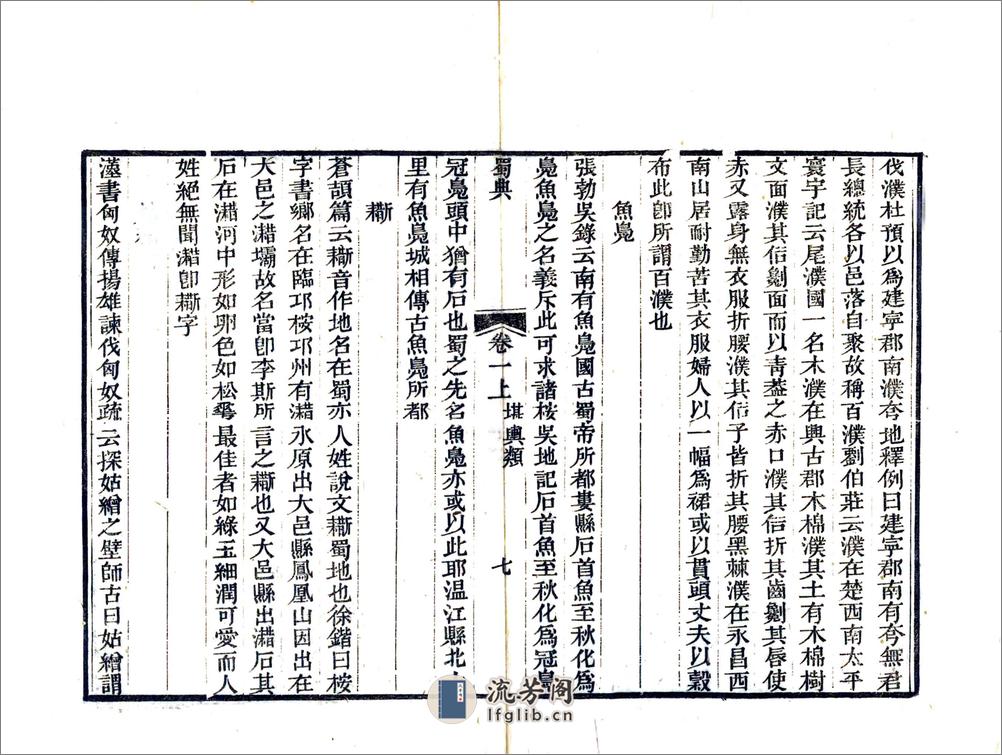 伐濮杜預以爲建寧郡南濮夸地釋例曰建寧郡南有夸無君
長總統各以邑落自聚故稱百濮劉伯莊云濮在楚西南太平
寰宇記云尾濮國一名木濮在興古郡木棉濮其土有木棉樹
文面濮其俗劖面而以靑葢之赤口濮其俗折其齒劖其唇使
赤又露身無衣服折腰濮其俗子皆折其腰黑棘濮在永昌西
南山居耐勤苦其衣服婦人以一幅爲裙或以貫頭丈夫以穀
布此卽所謂百濮也
魚鳧
張勃吳錄云南有魚鳧國古蜀帝所都婁縣石首魚至秋化爲
鳧魚鳧之名義斥此可求諸桉吳地記石首魚至秋化爲冠鳧
蜀典 卷一上 堪輿類 七
冠鳧頭中猶有石也蜀之先名魚鳧亦或以此耶温江縣北十
里有魚鳧城相傳古魚鳧所都
䣝
蒼頡篇云䣝音作地名在蜀亦人姓說文䣝蜀地也徐鍇曰桉
字書鄉名在臨邛桉邛州有㴽水原出大邑縣鳳凰山因出在
大邑之㴽壩故名當卽李斯所言之䣝也又大邑縣出㴽石其
石在㴽河中形如卵色如松花最佳者如綠玉細潤可愛而人
姓絕無聞㴽卽䣝字
漢書匈奴傳揚雄諫伐匈奴疏云探姑繒之壁師古曰姑繒謂
流芳阁
lfglib.cn